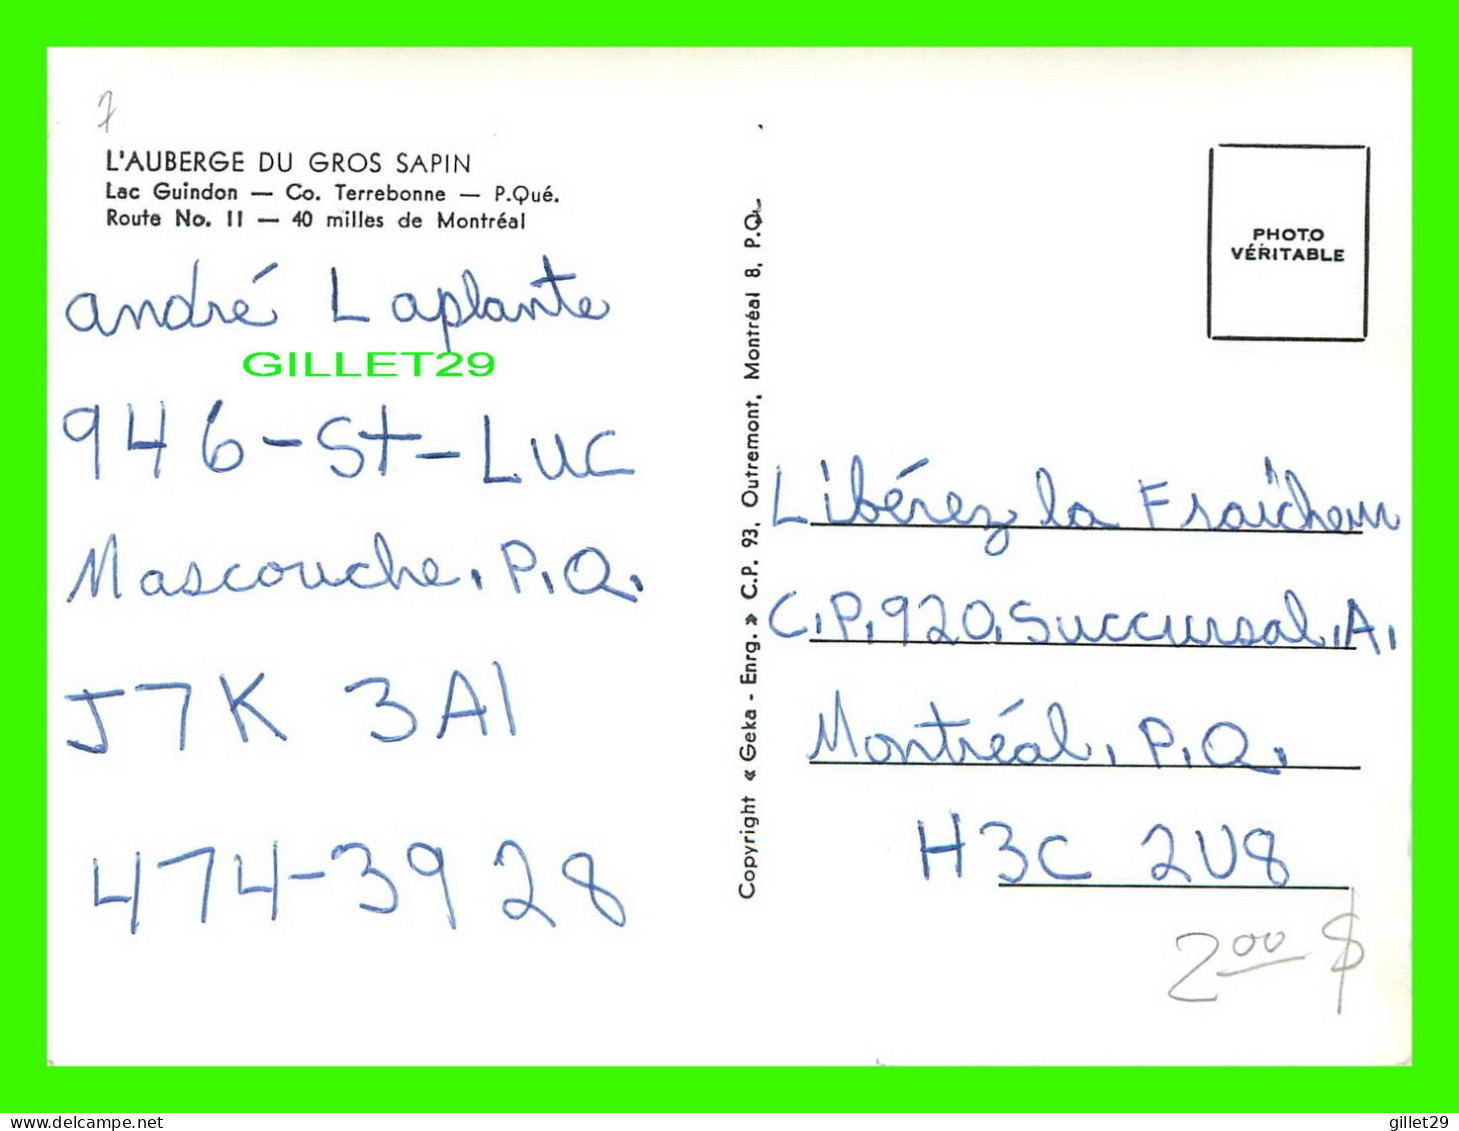 7
L'AUBERGE DU GROS SAPIN
Lac Guindon — Co. Terrebonne — P.Qué.
Route No. 11 — 40 milles de Montréal
andré Laplante
GILLET29
946-St-Luc
Mascouche, P.Q.
J7K 3A1
474-3928
Copyright « Geka - Enrg. » C.P. 93, Outremont, Montréal 8, P.Q.
PHOTO
VÉRITABLE
Libérez la Fraîcheur
C.P. 920, Succursal, A.
Montréal, P.Q.
H3C 2V8
2.00 $
delcampe.net
gillet29